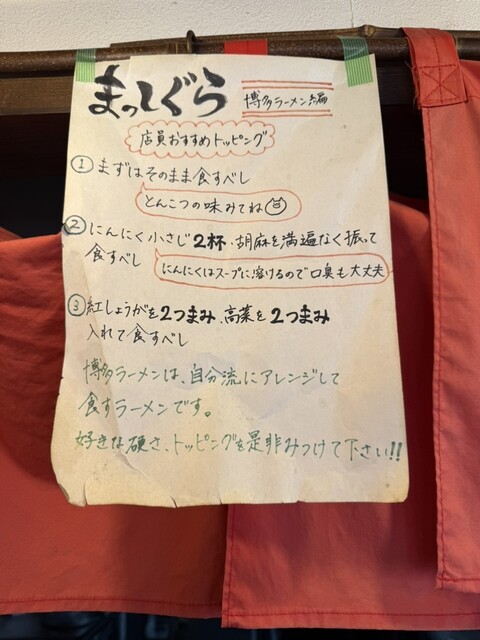 まっしぐら 博多ラーメン編
店員おすすめトッピング
① まずはそのまま食すべし
とんこつの味みてね
② にんにく小さじ2杯、胡麻を満遍なく振って
食すべし
にんにくはスープに溶けるので口臭も大丈夫
③ 紅しょうがを2つまみ、高菜を2つまみ
入れて食すべし
博多ラーメンは、自分流にアレンジして
食すラーメンです。
好きな硬さ、トッピングを是非みつけて下さい!!